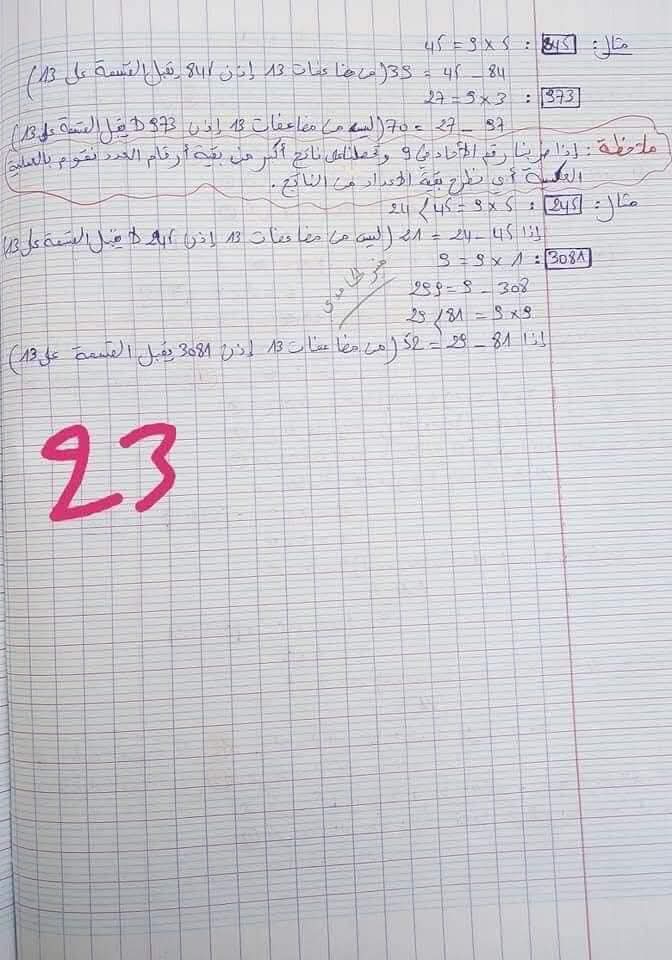 مثال: 845 : 5 × 9 = 45
84 - 45 = 39 (من مضاعفات 13 إذن 845 يقبل القسمة على 13)
973 : 3 × 9 = 27
97 - 27 = 70 (ليس من مضاعفات 13 إذن 973 لا يقبل القسمة على 13)
ملاحظة : إذا ضربنا رقم الآحاد في 9 وتحصلنا على ناتج أكبر من بقية أرقام العدد نقوم بالعملية
العكسية أي نطرح بقية الأعداد من الناتج.
مثال: 245 : 5 × 9 = 45 } 24
إذا 45 - 24 = 21 (ليس من مضاعفات 13 إذن 245 لا يقبل القسمة على 13)
3081 : 1 × 9 = 9
308 - 9 = 299
9 × 9 = 81 } 29
إذا 81 - 29 = 52 (من مضاعفات 13 إذن 3081 يقبل القسمة على 13)
23